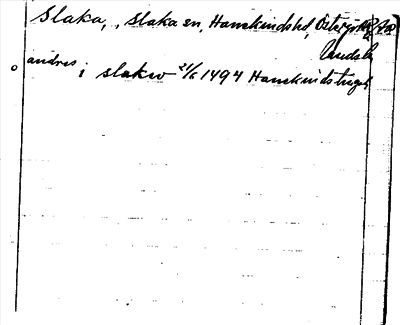 Slaka, , Slaka sn, Hanekinds hd, Östergötl
landsb
andres i slakw 21/6 1494 Hanekindstingh